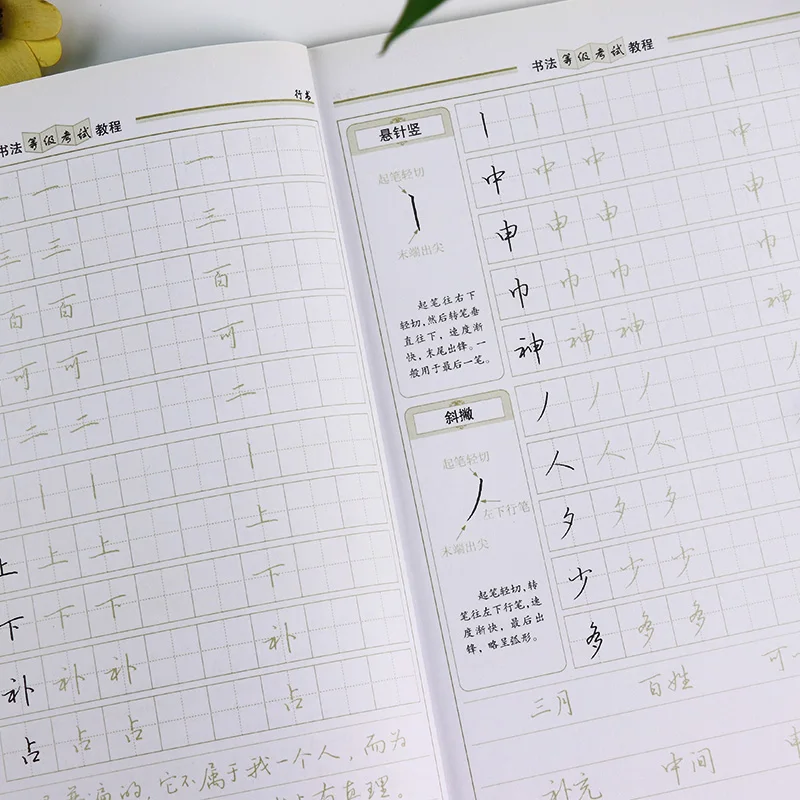 行书
书法等级考试教程
一 一 一
三 三 三
百 百 百
可 可 可
二 二 二
丨 丨 丨
上 上 上 上
下 下 下 下
补 补 补 补
占 占 占 占
普遍的,它不属于我一个人,而为
占有真理。
书法等级考试教程
悬针竖
起笔轻切
末端出尖
起笔往右下
轻切,然后转笔垂
直往下,速度渐
快,末尾出锋。一
般用于最后一笔。
斜撇
起笔轻切
左下行笔
末端出尖
起笔轻切,转
笔往左下行笔,速
度渐快,最后出
锋,略呈弧形。
丨 丨 丨 丨
中 中 中 中
申 申 申 申
巾 巾 巾 巾
神 神 神 神
丿 丿 丿 丿
人 人 人
夕 夕 夕
少 少 少
多 多 多
三月 百姓 可
补充 中间